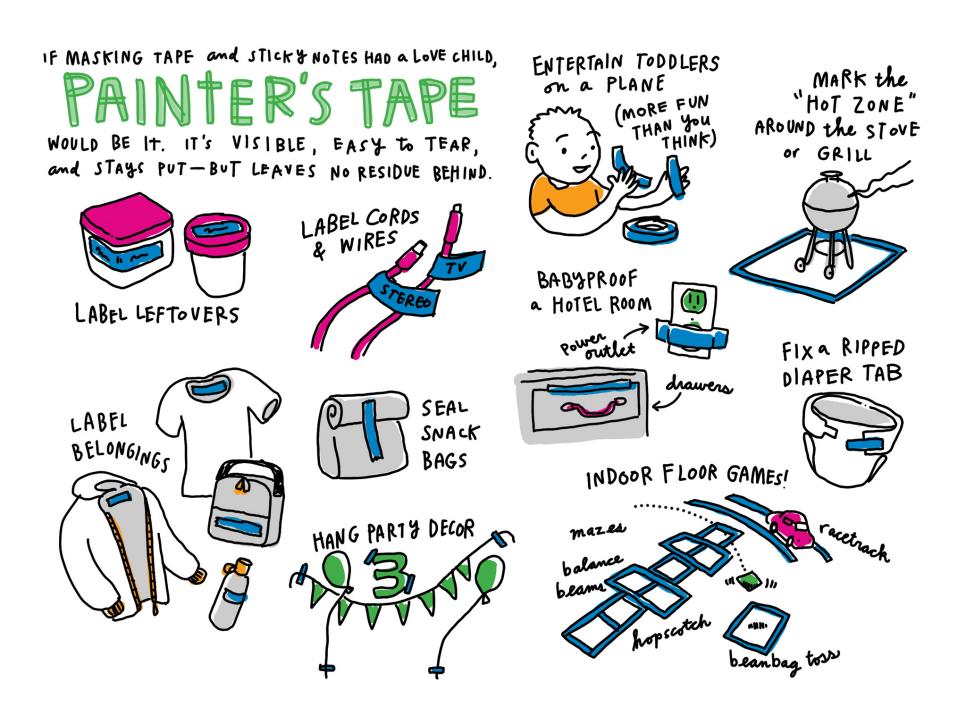 IF MASKING TAPE and STICKY NOTES HAD a LOVE CHILD,
PAINTER'S TAPE
WOULD BE IT. IT'S VISIBLE, EASY to TEAR,
and STAYS PUT—BUT LEAVES NO RESIDUE BEHIND.
LABEL LEFTOVERS
LABEL CORDS
& WIRES
TV
STEREO
ENTERTAIN TODDLERS
on a PLANE
(MORE FUN
THAN YOU
THINK)
MARK the
"HOT ZONE"
AROUND the STOVE
or GRILL
BABYPROOF
a HOTEL ROOM
power
outlet
drawers
FIX a RIPPED
DIAPER TAB
LABEL
BELONGINGS
SEAL
SNACK
BAGS
HANG PARTY DECOR
3
INDOOR FLOOR GAMES!
mazes
balance
beams
hopscotch
racetrack
beanbag toss